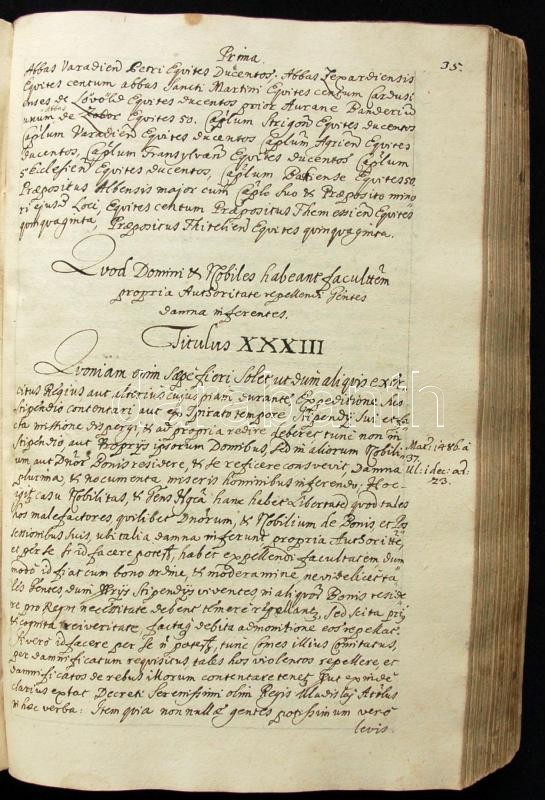 Prima.
35.
Abbas Varadien Petri Equites Ducentos. Abbas Zexardiensis
Equites centum abbus Sancti Martini Equites centum Cardusi
enses de Lövöld Equites ducentos prior Aurane Banderiū
unum de Abbas Zobor Equites 50. Caplum Strigon Equites ducentos
Caplum Varadien Equites ducentos Caplum Agrien Equites
ducentos, Caplum Transylvan Equites ducentos Caplum
5 Ecclesien Equites ducentos, Caplum Baciense Equites 50,
Præpositus Albensis major cum Caplo suo & Præposito mino
ri ejusd Loci, Equites centum Præpositus Themessien Equites
quinquaginta, Præpositus Thitelien Equites quinquaginta.
Quod Domini & Nobiles habeant facultēm
propria Authoritate repellendi Gentes
damna inferentes.
Titulus XXXIII
Quoniam enim sæpe fieri solet, ut dum aliquis exer
citus Regius aut alterius cujuspiam durante Expeditione suo
stipendio contentari aut expirato tempore Stipendij sui et fa
cta missione dispergi, & ad propria redire deberet tunc non in
Stipendio aut proprijs ipsorum Domibus, sed in aliorum Nobili
Mat: 1486. a
37.
um aut Dnōr Bonis residere, & se reficere consvevit, damna
Ul: i dec: ar:
23.
plurima, & nocumenta miseris hominibus inferendo. Hoc
igit casu Nobilitas, & Gens Nōra hanc habet Libertatē quod tales
hos malefactores, quilibet Dnōrum, & Nobilium de Bonis et Pos
sessionibus suis, ubi talia damna inferunt propria Authoritē,
et per se si id facere potest, habet expellendi facultatem dum
modo id fiat cum bono ordine, & moderamine, ne videlicet ta
les Gentes, dum Regijs Stipendijs viventes in aliquor Bonis reside
re pro Regni necessitate debent temere repellant, Sed scita prius
& cognita rei veritate, facta debita admonitione eos repellat.
Si vero id facere per se n potest, tunc Comes illius Comitatus,
per damnificatum requisitus tales hos violentos repellere, et
damnificatos de rebus illorum contentare tenet Put exinde
clarius extat Decret. Serenissimi olim Regis Uladislaj Artlus
in hæc verba: Item quia non nullæ gentes potissimum verō
levis.